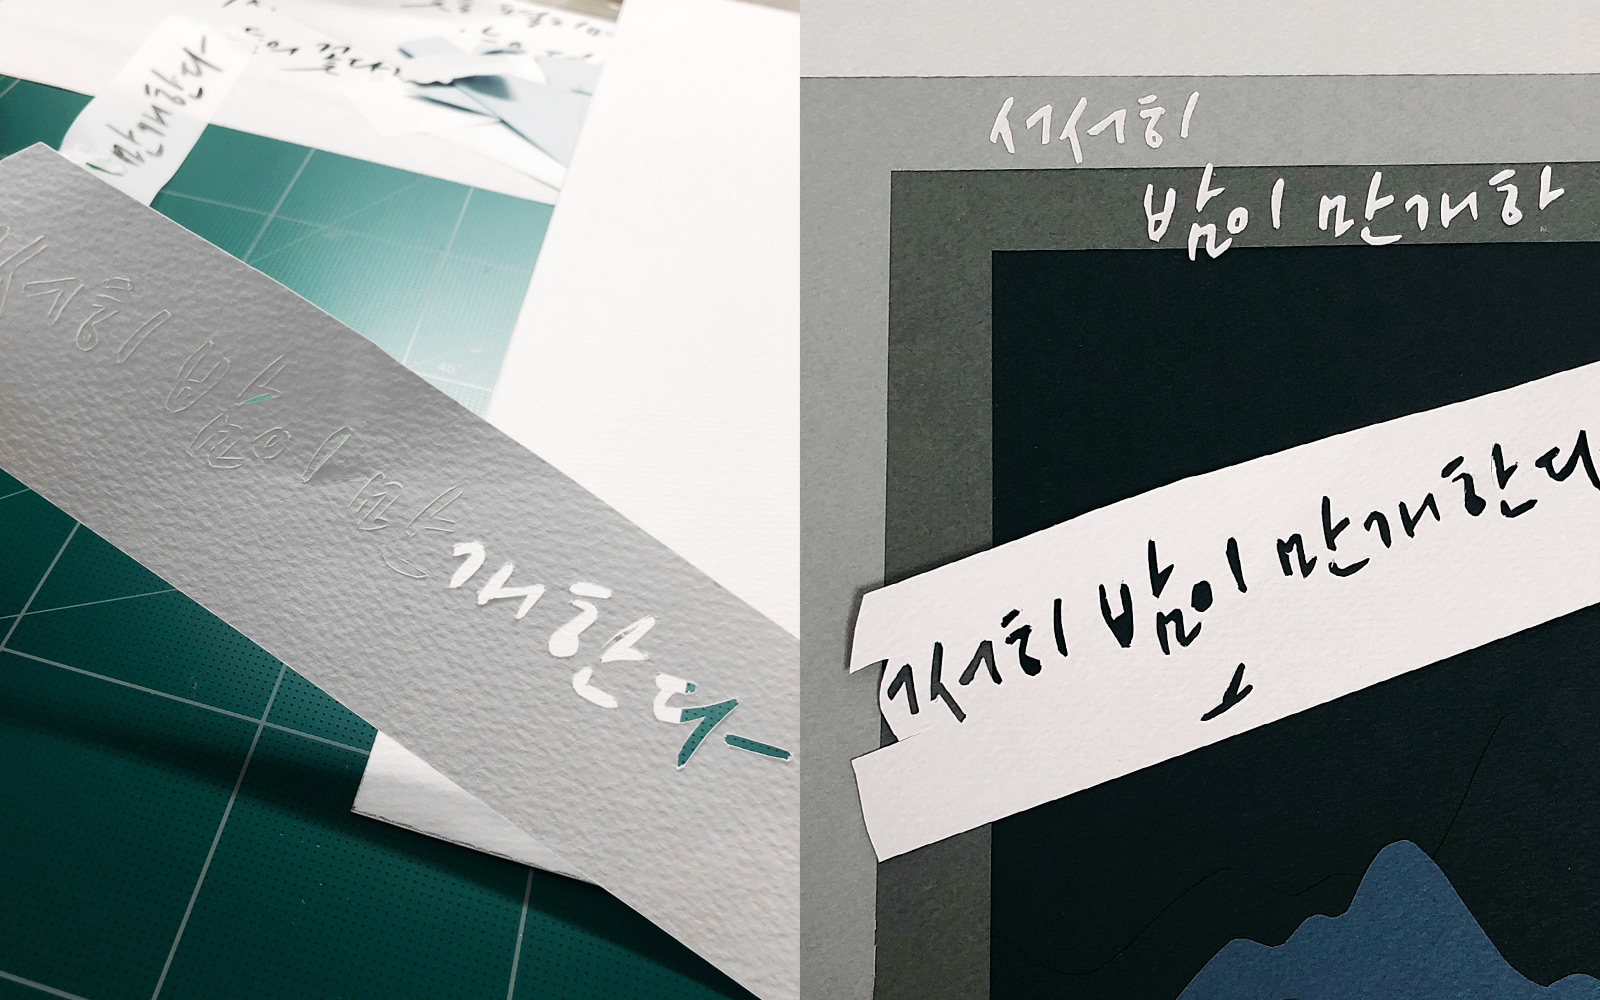 만개한다
서히 밤이 만개한다
서서히
밤이 만개하
서서히 밤이 만개한다